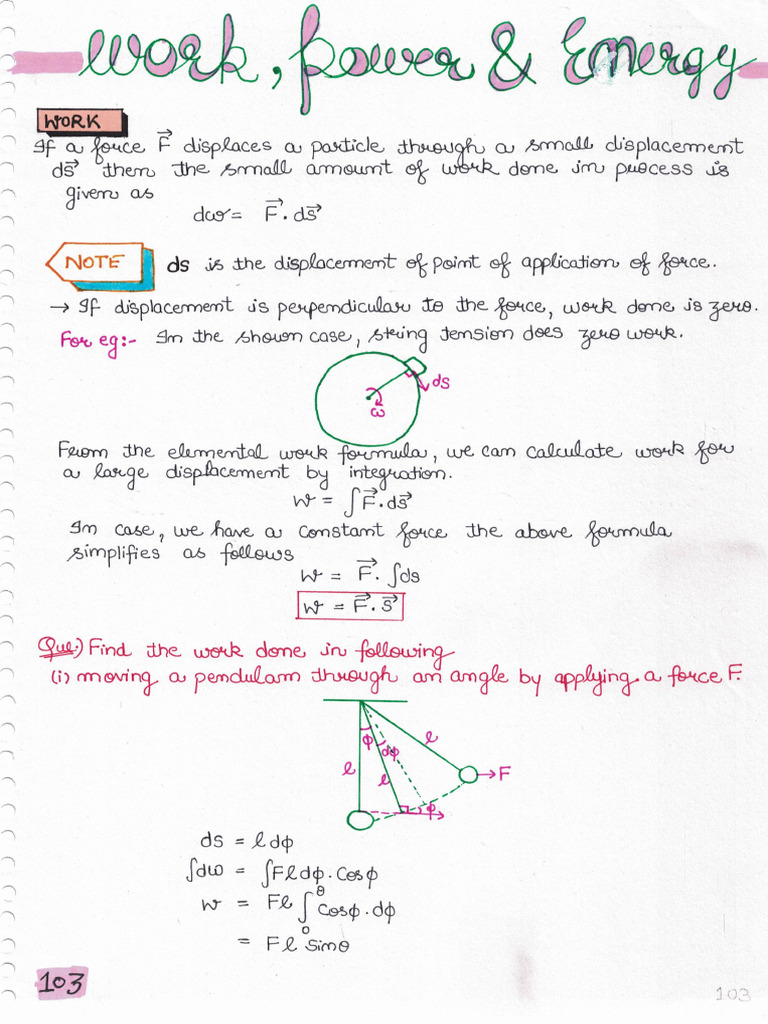 Work, Power & Energy
WORK
If a force F⃗ displaces a particle through a small displacement
ds⃗ then the small amount of work done in process is
given as
dw = F⃗ . ds⃗
NOTE ds is the displacement of point of application of force.
→ If displacement is perpendicular to the force, work done is zero.
For eg:- In the shown case, string tension does zero work.
ds
ω
From the elemental work formula, we can calculate work for
a large displacement by integration.
W = ∫F⃗.ds⃗
In case, we have a constant force the above formula
simplifies as follows
W = F⃗. ∫ds
W = F⃗.S⃗
Que:) Find the work done in following
(i) moving a pendulam through an angle by applying a force F.
ϕ
dϕ
l
l
l
F
ϕ
ds = l dϕ
∫dω = ∫Fldϕ.Cosϕ
W = Fl ∫₀^θ Cosϕ.dϕ
= Fl Sinθ
103
103